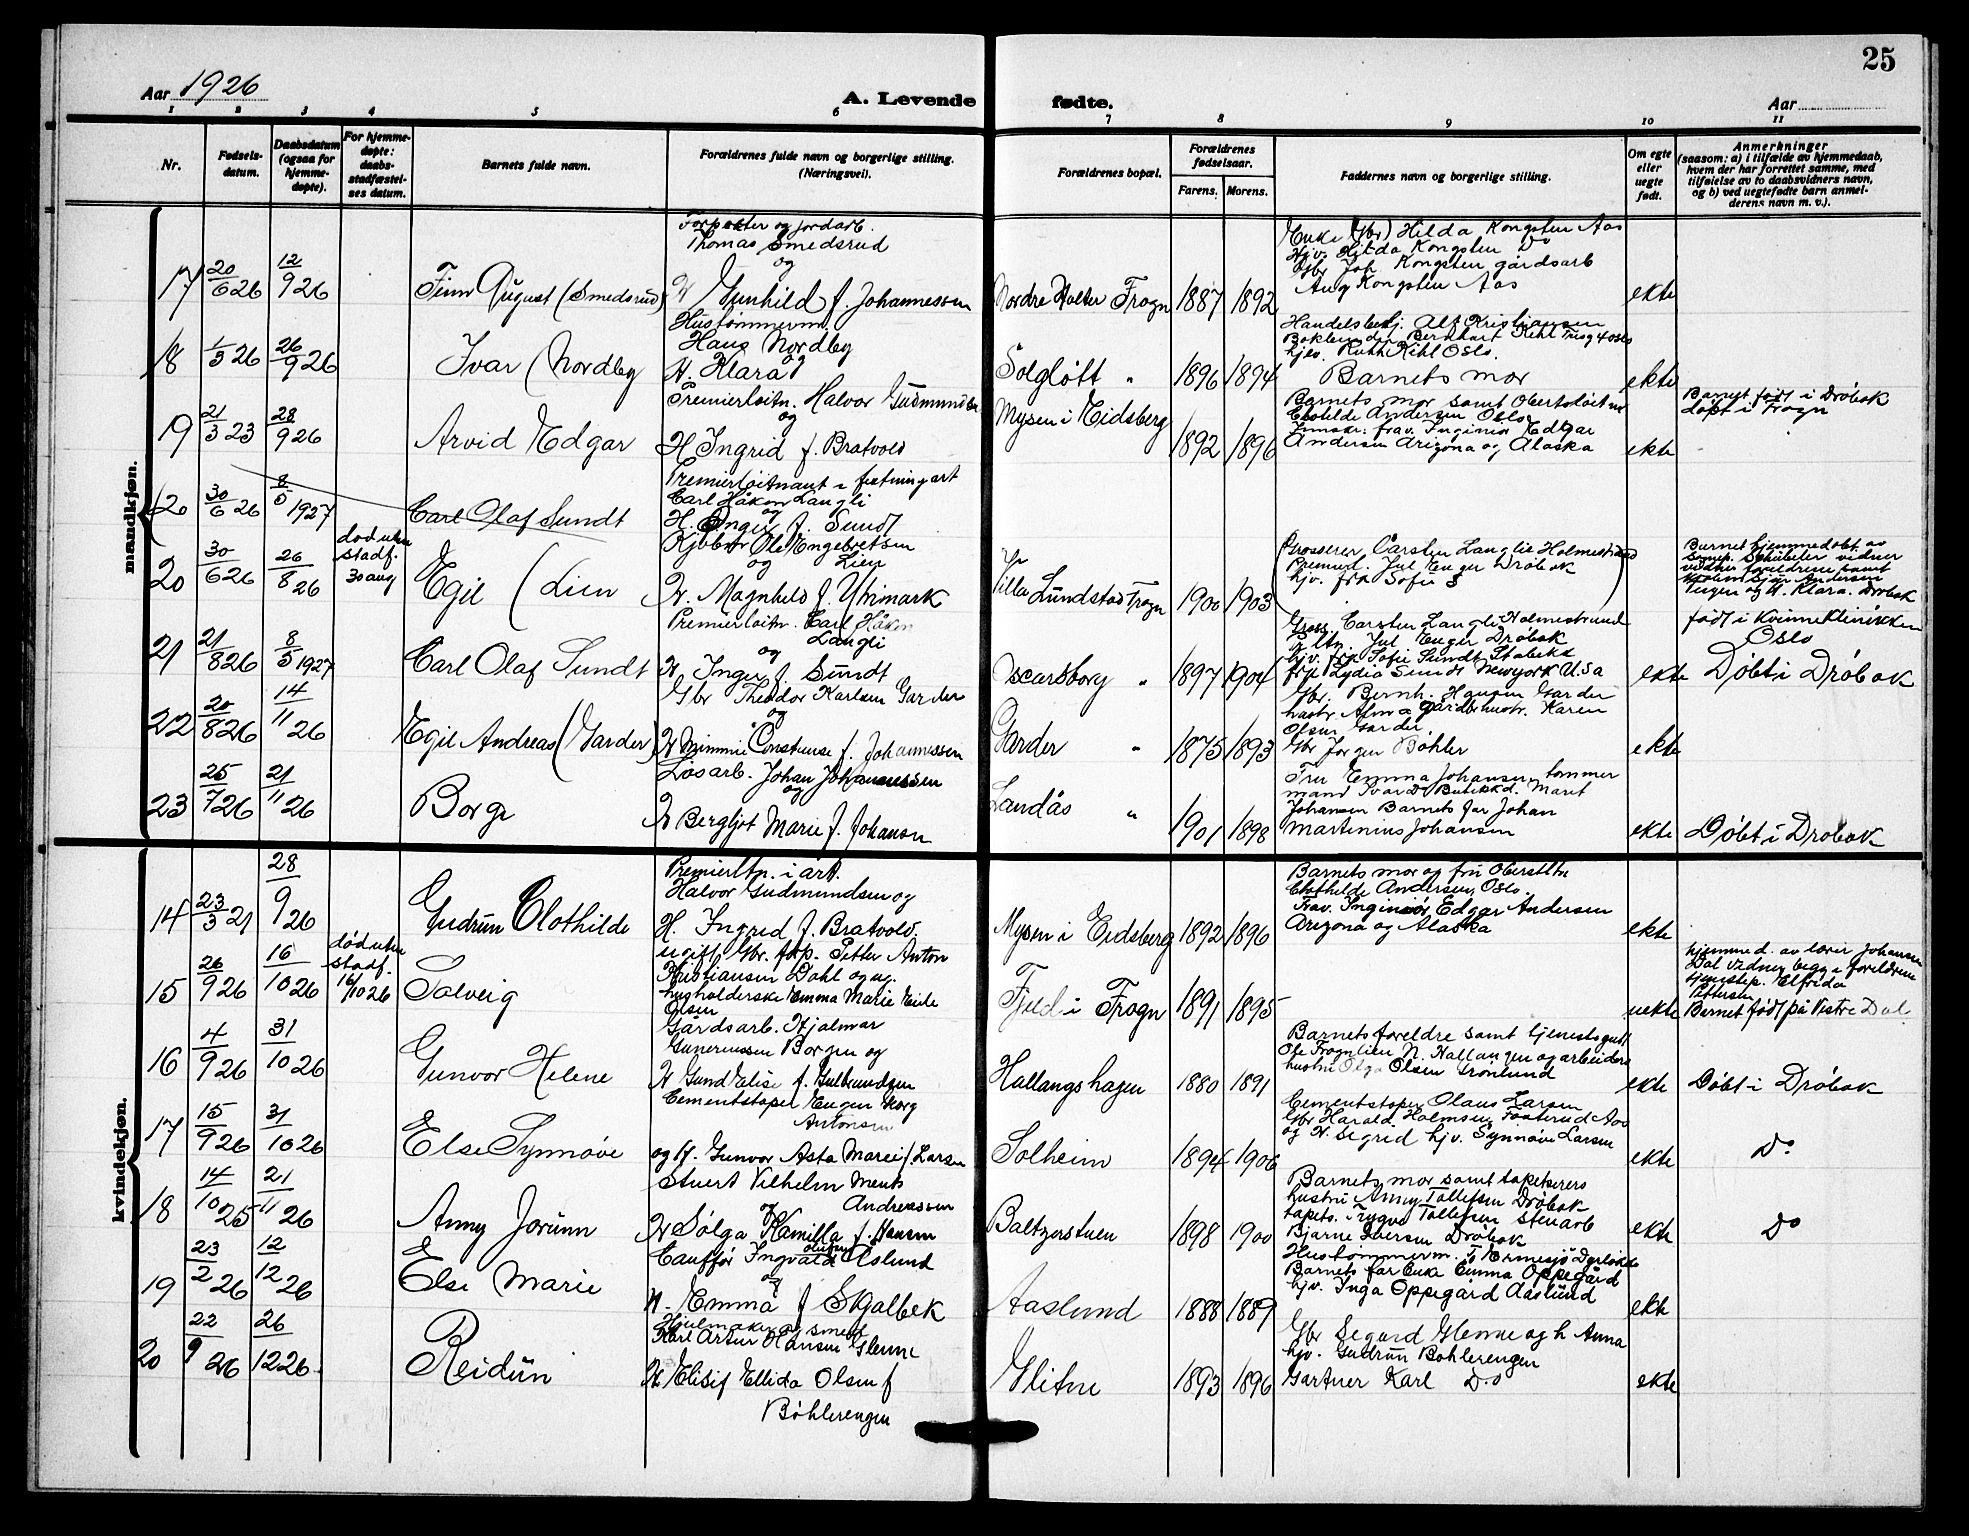 25
Aar 1926
A. Levende fødte.
Aar
1 2 3 4 5 6 7 8 9 10 11
Nr.
Fødsels-
datum.
Daabsdatum
(ogsaa for
hjemme-
døpte).
For hjemme-
døpte:
daabs-
stadfæstel-
ses datum.
Barnets fulde navn.
Forældrenes fulde navn og borgerlige stilling.
(Næringsvei).
Forældrenes bopæl.
Forældrenes
fødselsaar.
Farens. Morens.
Faddernes navn og borgerlige stilling.
Om egte
eller
uegte
født.
Anmerkninger
(saasom: a) i tilfælde av hjemmedaab,
hvem der har forrettet samme, med
tilføielse av to daabsvidners navn,
og b) ved uegtefødte barn anmel-
derens navn m. v.).
mandkjøn.
17 20/6 26 12/9 26
Finn August (Smedsrud)
Forpakter og jordarb.
Thomas Smedsrud
og
H Gunhild f. Johannessen
Nordre Halter Frogn
1887 1892
Enke (Gbr) Hilda Kongsten Aas
Hjv. Hilda Kongsten Do
Gbr Joh Kongsten gårdsarb
Aug Kongsten Aas
ekte
18 1/3 26 26/9 26
Ivar (Nordby
Hustømmerm.
Hans Nordby
og
H. Klara
Solgløtt "
1896 1894
Handelsbetj. Alf Kristiansen
Bernhart Kihl Oslo
hjv. Ruth Kihl Oslo.
Barnets mor
ekte
19 21/3 23 28/9 26
Arvid Edgar
Premierløitn. Halvor Gudmundsen
og
H Ingrid f. Bratvold
Mysen i Eidsberg
1892 1896
Barnets mor samt Oberstløitn
Clotilde Andersen Oslo
frav. Inginiør Edgar
Andersen Arizona og Alaska
ekte
Barnet født i Drøbak
døpt i Frogn
20 30/6 26 8/5 1927
Carl Olaf Sundt
Premierløitnant i festningsart
Carl Håkon Langli
og
H. Inger f. Sundt
20 30/6 26 26/8 26
død uten
stadf.
30 aug
Egil (Lien
Kjøbm Ole Engebretsen
og Lien
H. Magnhild f. Ytrimark
Villa Lundstad Frogn
1900 1903
(Grosserer Carsten Langlie Holmestrand
Premierl. Jul Enger Drøbak
hjv. frk Sofie S
Barnet hjemmedøbt av
vidner
foreldrene samt
Andersen
og H. Klara. Drøbak
21 21/8 26 8/5 1927
Carl Olaf Sundt
Premierløitn. Carl Håkon
Langli
og
H Inger f. Sundt
Oscarsborg "
1897 1904
Gross Carsten Langli Holmestrand
P.ltn Jul Enger Drøbak
hjv. frk Sofie Sundt Stabekk
frk Lydia Sundt Newyork U.S.a
ekte
født i Kvinneklinikken
Oslo
Døbt i Drøbak
22 20/8 26 14/11 26
Egil Andreas (Garder)
Gbr Theodor Karlsen Garder
og
H Mimmie Constanse f. Johannessen
Garder "
1875 1893
Gbr. Bernh. Hansen Garder
hustr. Alma Garder hustr. Karen
Olsen Garder
Gbr Jørgen Bøhler
ekte
23 25/7 26 21/11 26
Borge
Løsarb. Johan Johannessen
og
H Bergljot Marie f. Johansen
Landås "
1901 1898
Fru Emma Johansen, tømmer
mand Ivar Do Butikkd. Marit
Johansen Barnets far Johan
Martinius Johansen
ekte
Døbt i Drøbak
kvindekjøn.
14 23/3 21 28/9 26
Gudrun Clothilde
Premierltn. i art.
Halvor Gudmundsen og
H. Ingrid f. Bratvold.
Mysen i Eidsberg
1892 1896
Barnets mor og fru Oberstltn
Clothilde Andersen, Oslo.
Frav. Inginiør Edgar Andersen
Arizona og Alaska
ekte
15 26/9 26 16/10 26
død uten
stadf.
16/10 26
Solveig
ugift Gbr. forp. Petter Anton
Kristiansen Dahl og ug.
husholderske Emma Marie Eide
Olsen
Fjeld i Frogn
1891 1895
uekte
hjemmed. av lærer Johansen
Dal Vidner begge foreldrene
tjenestep. Elfrida
Pettersen
Barnet født på Vestre Dal
16 4/9 26 31/10 26
Gunvor Helene
Gårdsarb. Hjalmar
Gunerussen Borgen og
H Gund Elise f. Gulbrandsen
Hallangshagen
1880 1891
Barnets foreldre samt tjenestegutt
Ole Frognlien N. Hallangen og arbeiders
hustru Olga Olsen Grønlund
ekte
Døbt i Drøbak
17 15/9 26 31/10 26
Else Synnøve
Cementstøper Eugen Borg
Antonsen
og H. Gunvor Asta Marie f. Larsen
Solheim
1894 1906
Cementstøper Olaus Larsen
Gbr Harald Holmsen Fosterud Aas
og H. Sigrid hjv. Synnøve Larsen
ekte
Do
18 14/10 25 21/11 26
Anny Jorunn
Stuert Vilhelm Mentz
Andreassen
og
H Solga Kamilla f. Hansen
Baltzerstuen
1898 1900
Barnets mor samt tapetserers
hustru Anny Tollefsen Drøbak
tapets. Trygve Tollefsen stenarb
Bjarne Iversen Drøbak
ekte
Do
19 23/2 26 12/12 26
Else Marie
Cauffør Ingvald Olufsen Åslund
og
H. Emma f Skjalbek
Aaslund
1888 1889
Hustømmerm. T. Ornesjø Dyrløkke
Barnets far Enke Emma Oppegård
hjv. Inga Oppegård Aaslund
ekte
20 22/9 26 26/12 26
Reidun
Hjulmaker og smed
Karl Artur Hansen Glenne
H Elisif Ellida Olsen f
Bøhlerengen
Glitne
1893 1896
Gbr Sigurd Glenne og h Anna
hjv. Gudrun Bøhlerengen
Gartner Karl Do
ekte